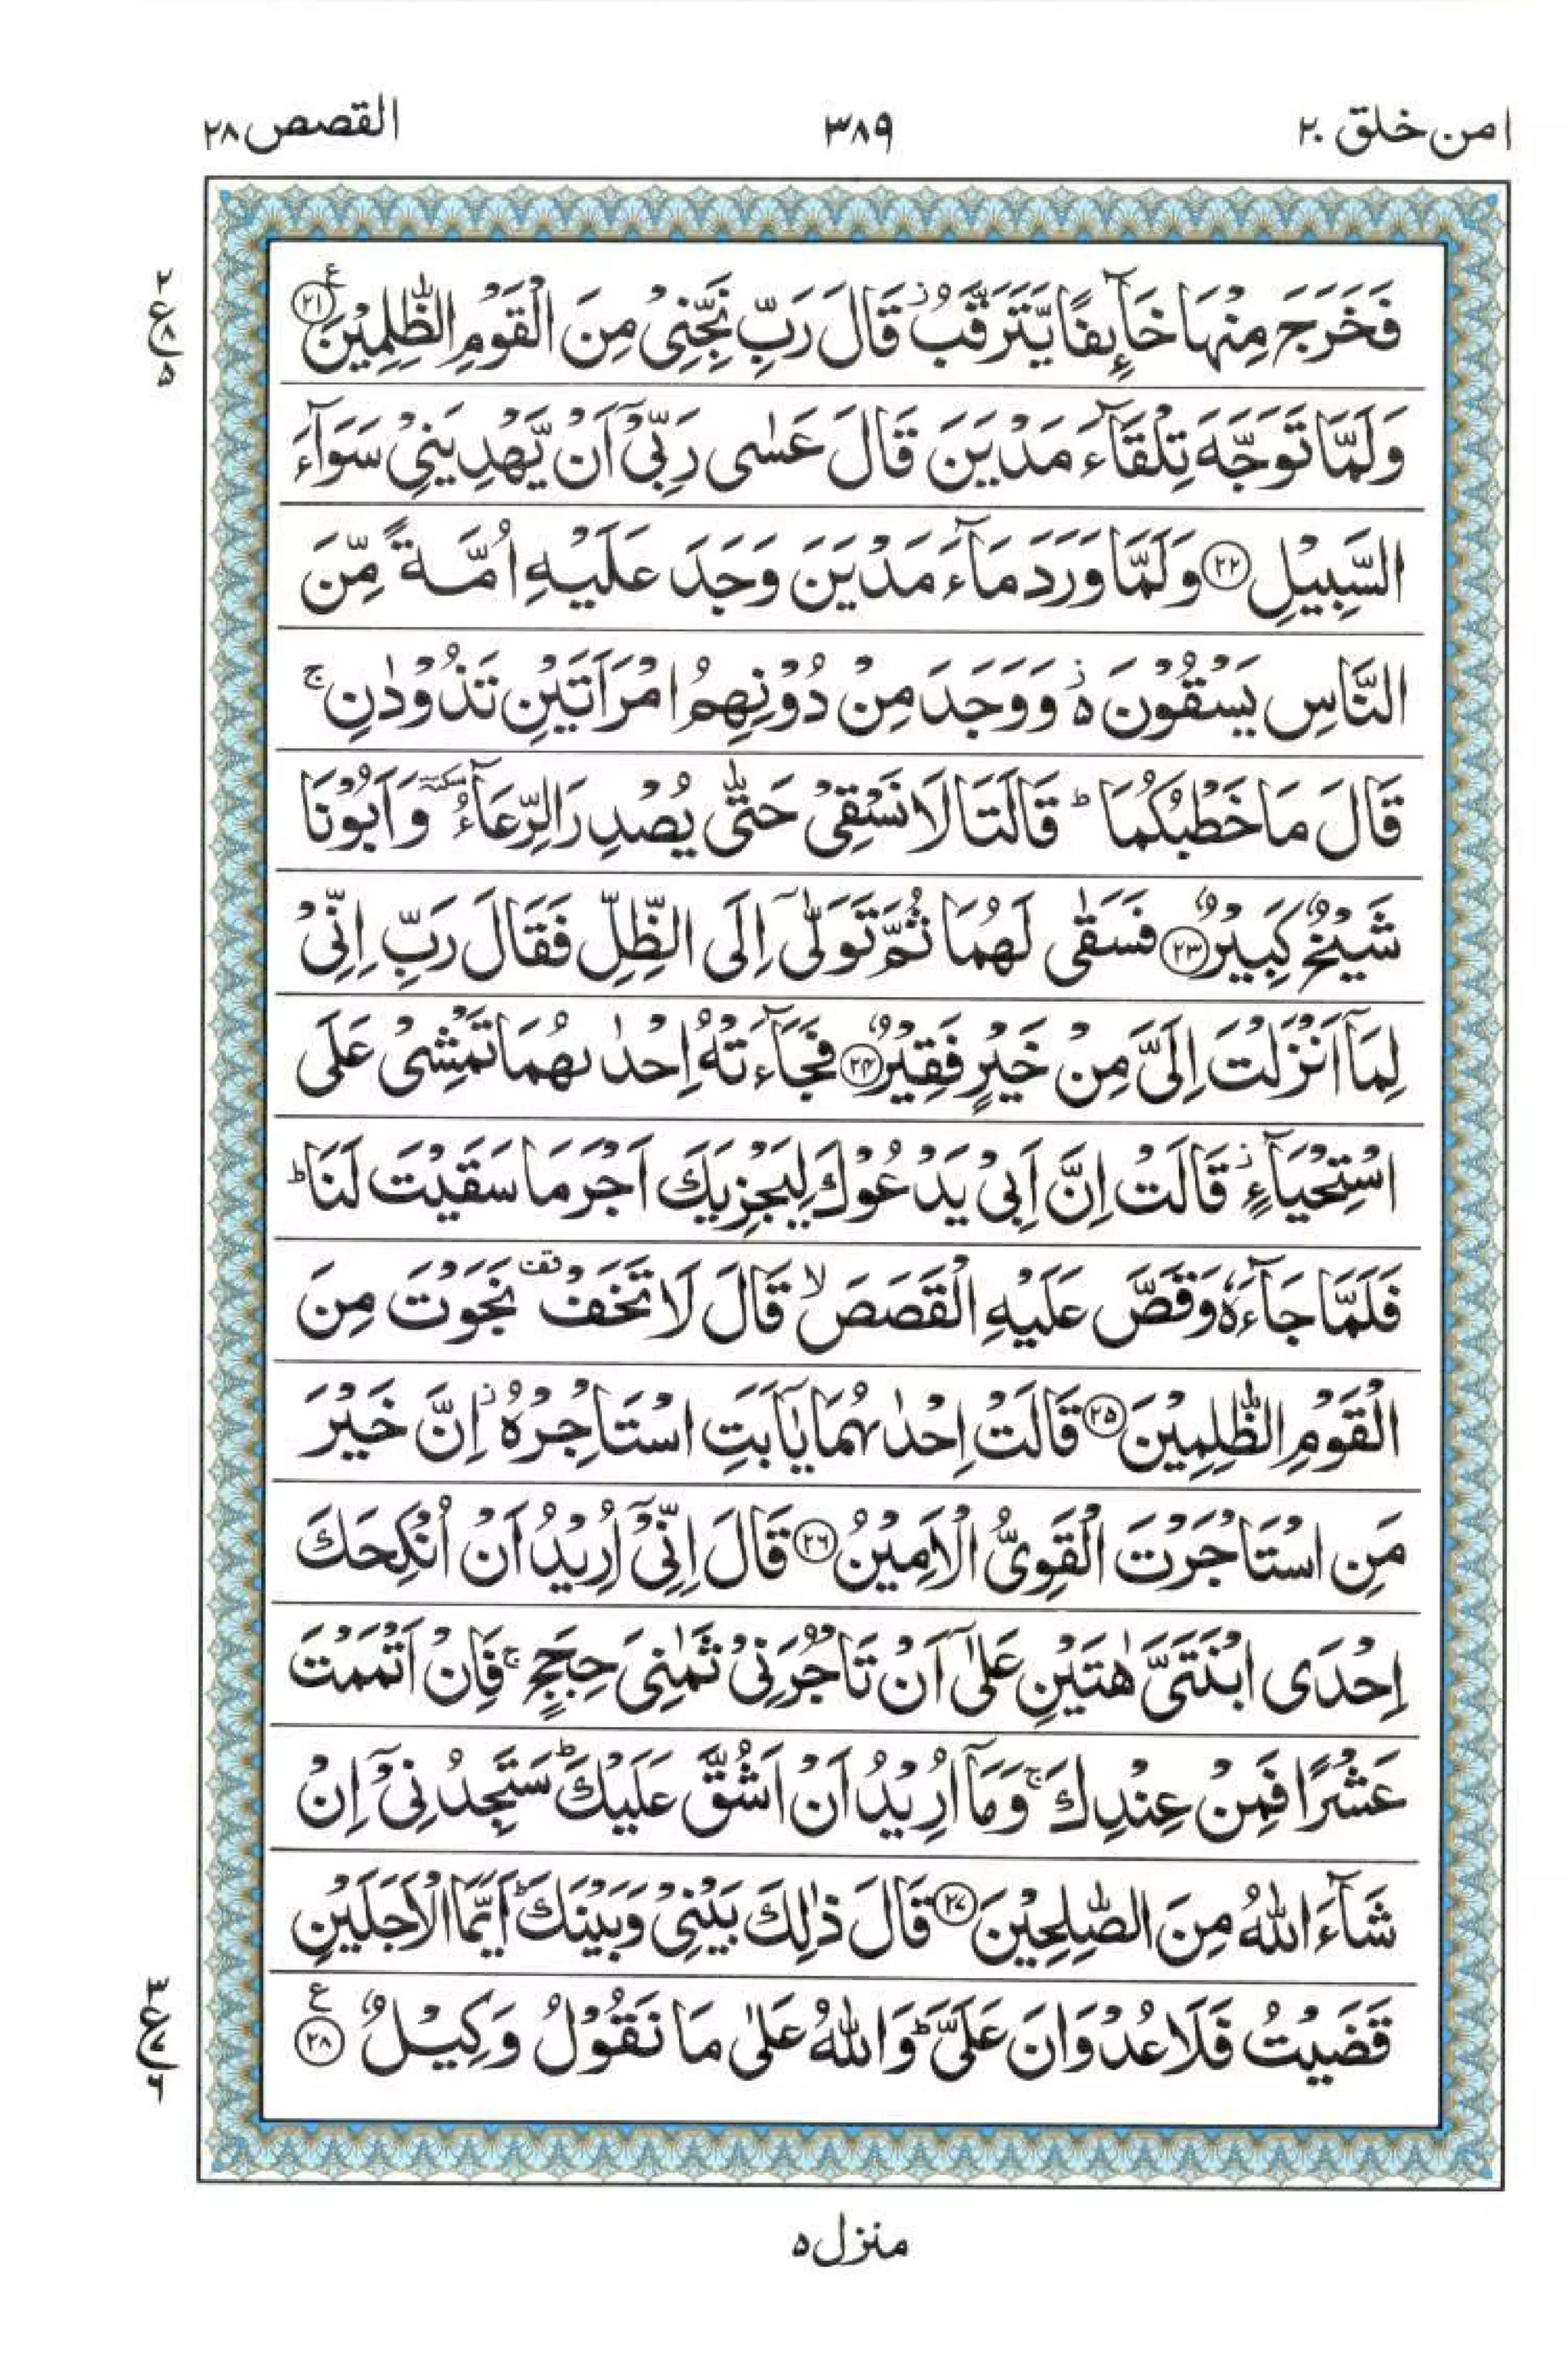 امن خلق ۲۰
۳۸۹
القصص ۲۸
فَخَرَجَ مِنْهَا خَآىِٕفًا يَّتَرَقَّبُ ؗ قَالَ رَبِّ نَجِّنِيْ مِنَ الْقَوْمِ الظّٰلِمِيْنَ ۟۠ ﴿۲۱﴾
وَلَمَّا تَوَجَّهَ تِلْقَآءَ مَدْيَنَ قَالَ عَسٰى رَبِّيْۤ اَنْ يَّهْدِيَنِيْ سَوَآءَ
السَّبِيْلِ ﴿۲۲﴾ وَلَمَّا وَرَدَ مَآءَ مَدْيَنَ وَجَدَ عَلَيْهِ اُمَّةً مِّنَ
النَّاسِ يَسْقُوْنَ ۬ ه وَوَجَدَ مِنْ دُوْنِهِمُ امْرَاَتَيْنِ تَذُوْدٰنِ ۚ
قَالَ مَا خَطْبُكُمَا ؕ قَالَتَا لَا نَسْقِيْ حَتّٰى يُصْدِرَ الرِّعَآءُ سكتة وَاَبُوْنَا
شَيْخٌ كَبِيْرٌ ﴿۲۳﴾ فَسَقٰى لَهُمَا ثُمَّ تَوَلّٰۤى اِلَى الظِّلِّ فَقَالَ رَبِّ اِنِّيْ
لِمَاۤ اَنْزَلْتَ اِلَيَّ مِنْ خَيْرٍ فَقِيْرٌ ﴿۲۴﴾ فَجَآءَتْهُ اِحْدٰىهُمَا تَمْشِيْ عَلَى
اسْتِحْيَآءٍ ؗ قَالَتْ اِنَّ اَبِيْ يَدْعُوْكَ لِيَجْزِيَكَ اَجْرَ مَا سَقَيْتَ لَنَا ؕ
فَلَمَّا جَآءَهٗ وَقَصَّ عَلَيْهِ الْقَصَصَ ۙ قَالَ لَا تَخَفْ قف نَجَوْتَ مِنَ
الْقَوْمِ الظّٰلِمِيْنَ ﴿۲۵﴾ قَالَتْ اِحْدٰىهُمَا يٰۤاَبَتِ اسْتَاْجِرْهُ ؗ اِنَّ خَيْرَ
مَنِ اسْتَاْجَرْتَ الْقَوِيُّ الْاَمِيْنُ ﴿۲۶﴾ قَالَ اِنِّيْۤ اُرِيْدُ اَنْ اُنْكِحَكَ
اِحْدَى ابْنَتَيَّ هٰتَيْنِ عَلٰۤى اَنْ تَاْجُرَنِيْ ثَمٰنِيَ حِجَجٍ ۚ فَاِنْ اَتْمَمْتَ
عَشْرًا فَمِنْ عِنْدِكَ ۚ وَمَاۤ اُرِيْدُ اَنْ اَشُقَّ عَلَيْكَ ؕ سَتَجِدُنِيْۤ اِنْ
شَآءَ اللّٰهُ مِنَ الصّٰلِحِيْنَ ﴿۲۷﴾ قَالَ ذٰلِكَ بَيْنِيْ وَبَيْنَكَ ؕ اَيَّمَا الْاَجَلَيْنِ
قَضَيْتُ فَلَا عُدْوَانَ عَلَيَّ ؕ وَاللّٰهُ عَلٰى مَا نَقُوْلُ وَكِيْلٌ ﴿۲۸﴾ ع
۲
ع ۸
۵
۳
ع ۷
۶
منزل ۵